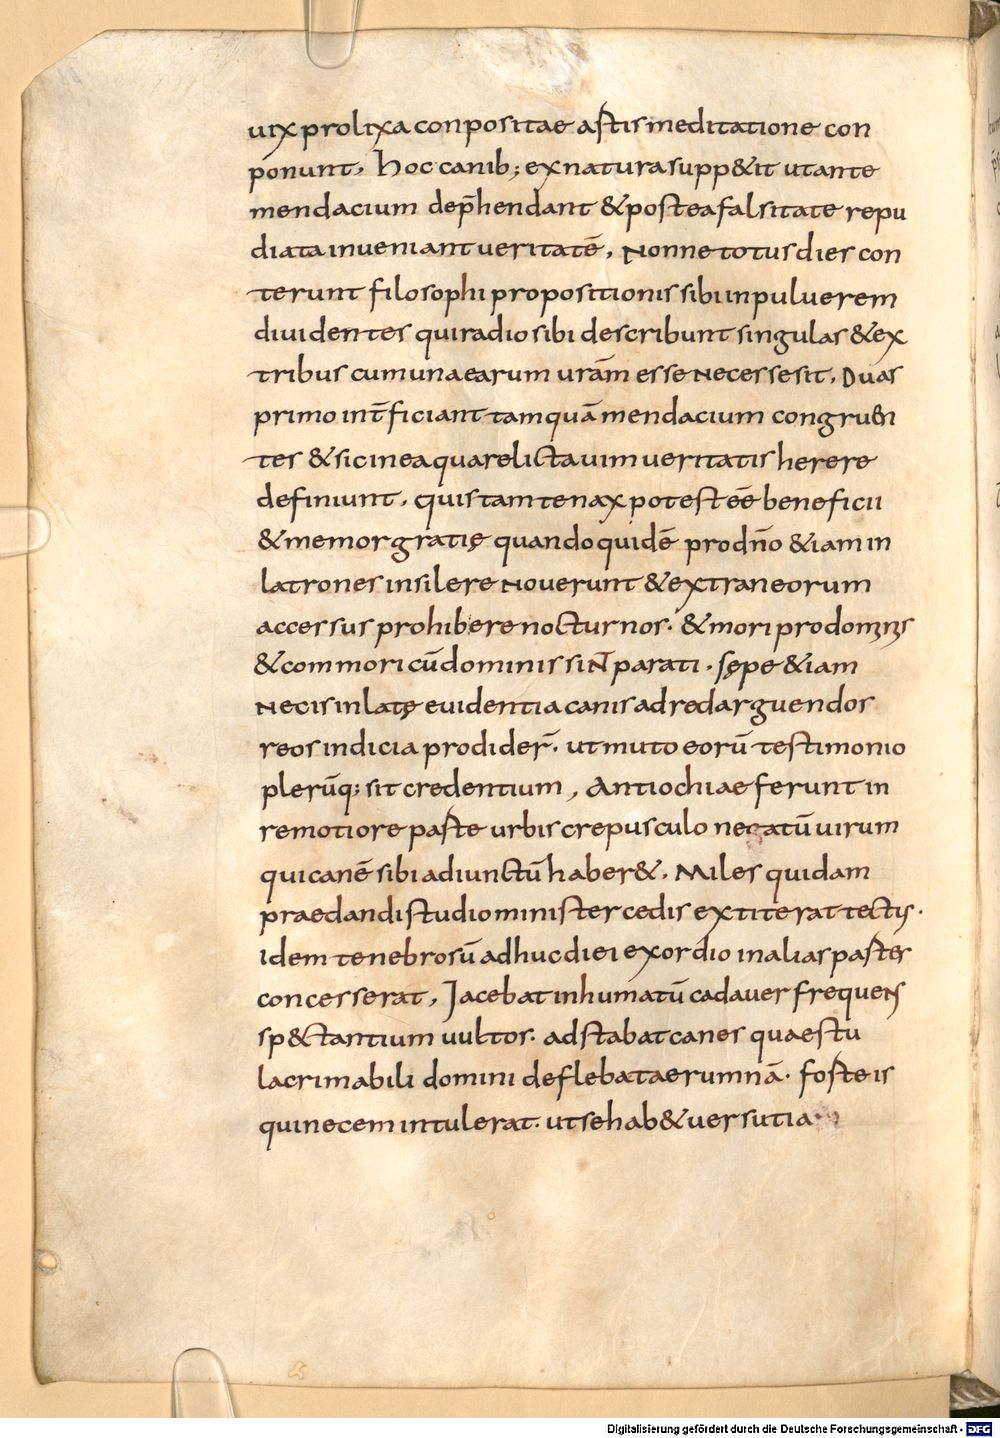 uix prolixa conpositae astis meditatione con
ponunt, hoc canib; ex natura supp&it ut ante
mendacium dep̄hendant & postea falsitate repu
diata inueniant ueritatē, Nonne totus dies con
terunt filosophi propositionis sibi in puluerem
diuidentes qui radio sibi describunt singulas & ex
tribus cum una earum urām esse necesse sit, Duas
primo int̄ficiant tamquā mendacium congruen
tes & sic in ea qua relicta uim ueritatis herere
definiunt, quis tam tenax potest eē beneficii
& memor gratię quando quidē pro dn̄o &iam in
latrones insilere nouerunt & extraneorum
accersus prohibere nocturnos. & mori pro domnis
& commori cū dominis sint parati. sępe &iam
necis inlatę euidentia canis ad redarguendos
reos indicia prodider̄. ut muto eorū testimonio
plerūq; sit credentium, Antiochiae ferunt in
remotiore paste urbis crepusculo negatū uirum
qui canē sibi adiunctū haber&, Miles quidam
praedandi studio minister cedis extiterat tectis.
idem tenebrosū adhuc diei exordio in alias pastes
concesserat, Jacebat inhumatū cadauer frequens
sp&ctantium uultos. adstabat canes quaestu
lacrimabili domini deflebat aerumnā. foste is
qui necem intulerat. ut se hab& uersutia
Digitalisierung gefördert durch die Deutsche Forschungsgemeinschaft - DFG